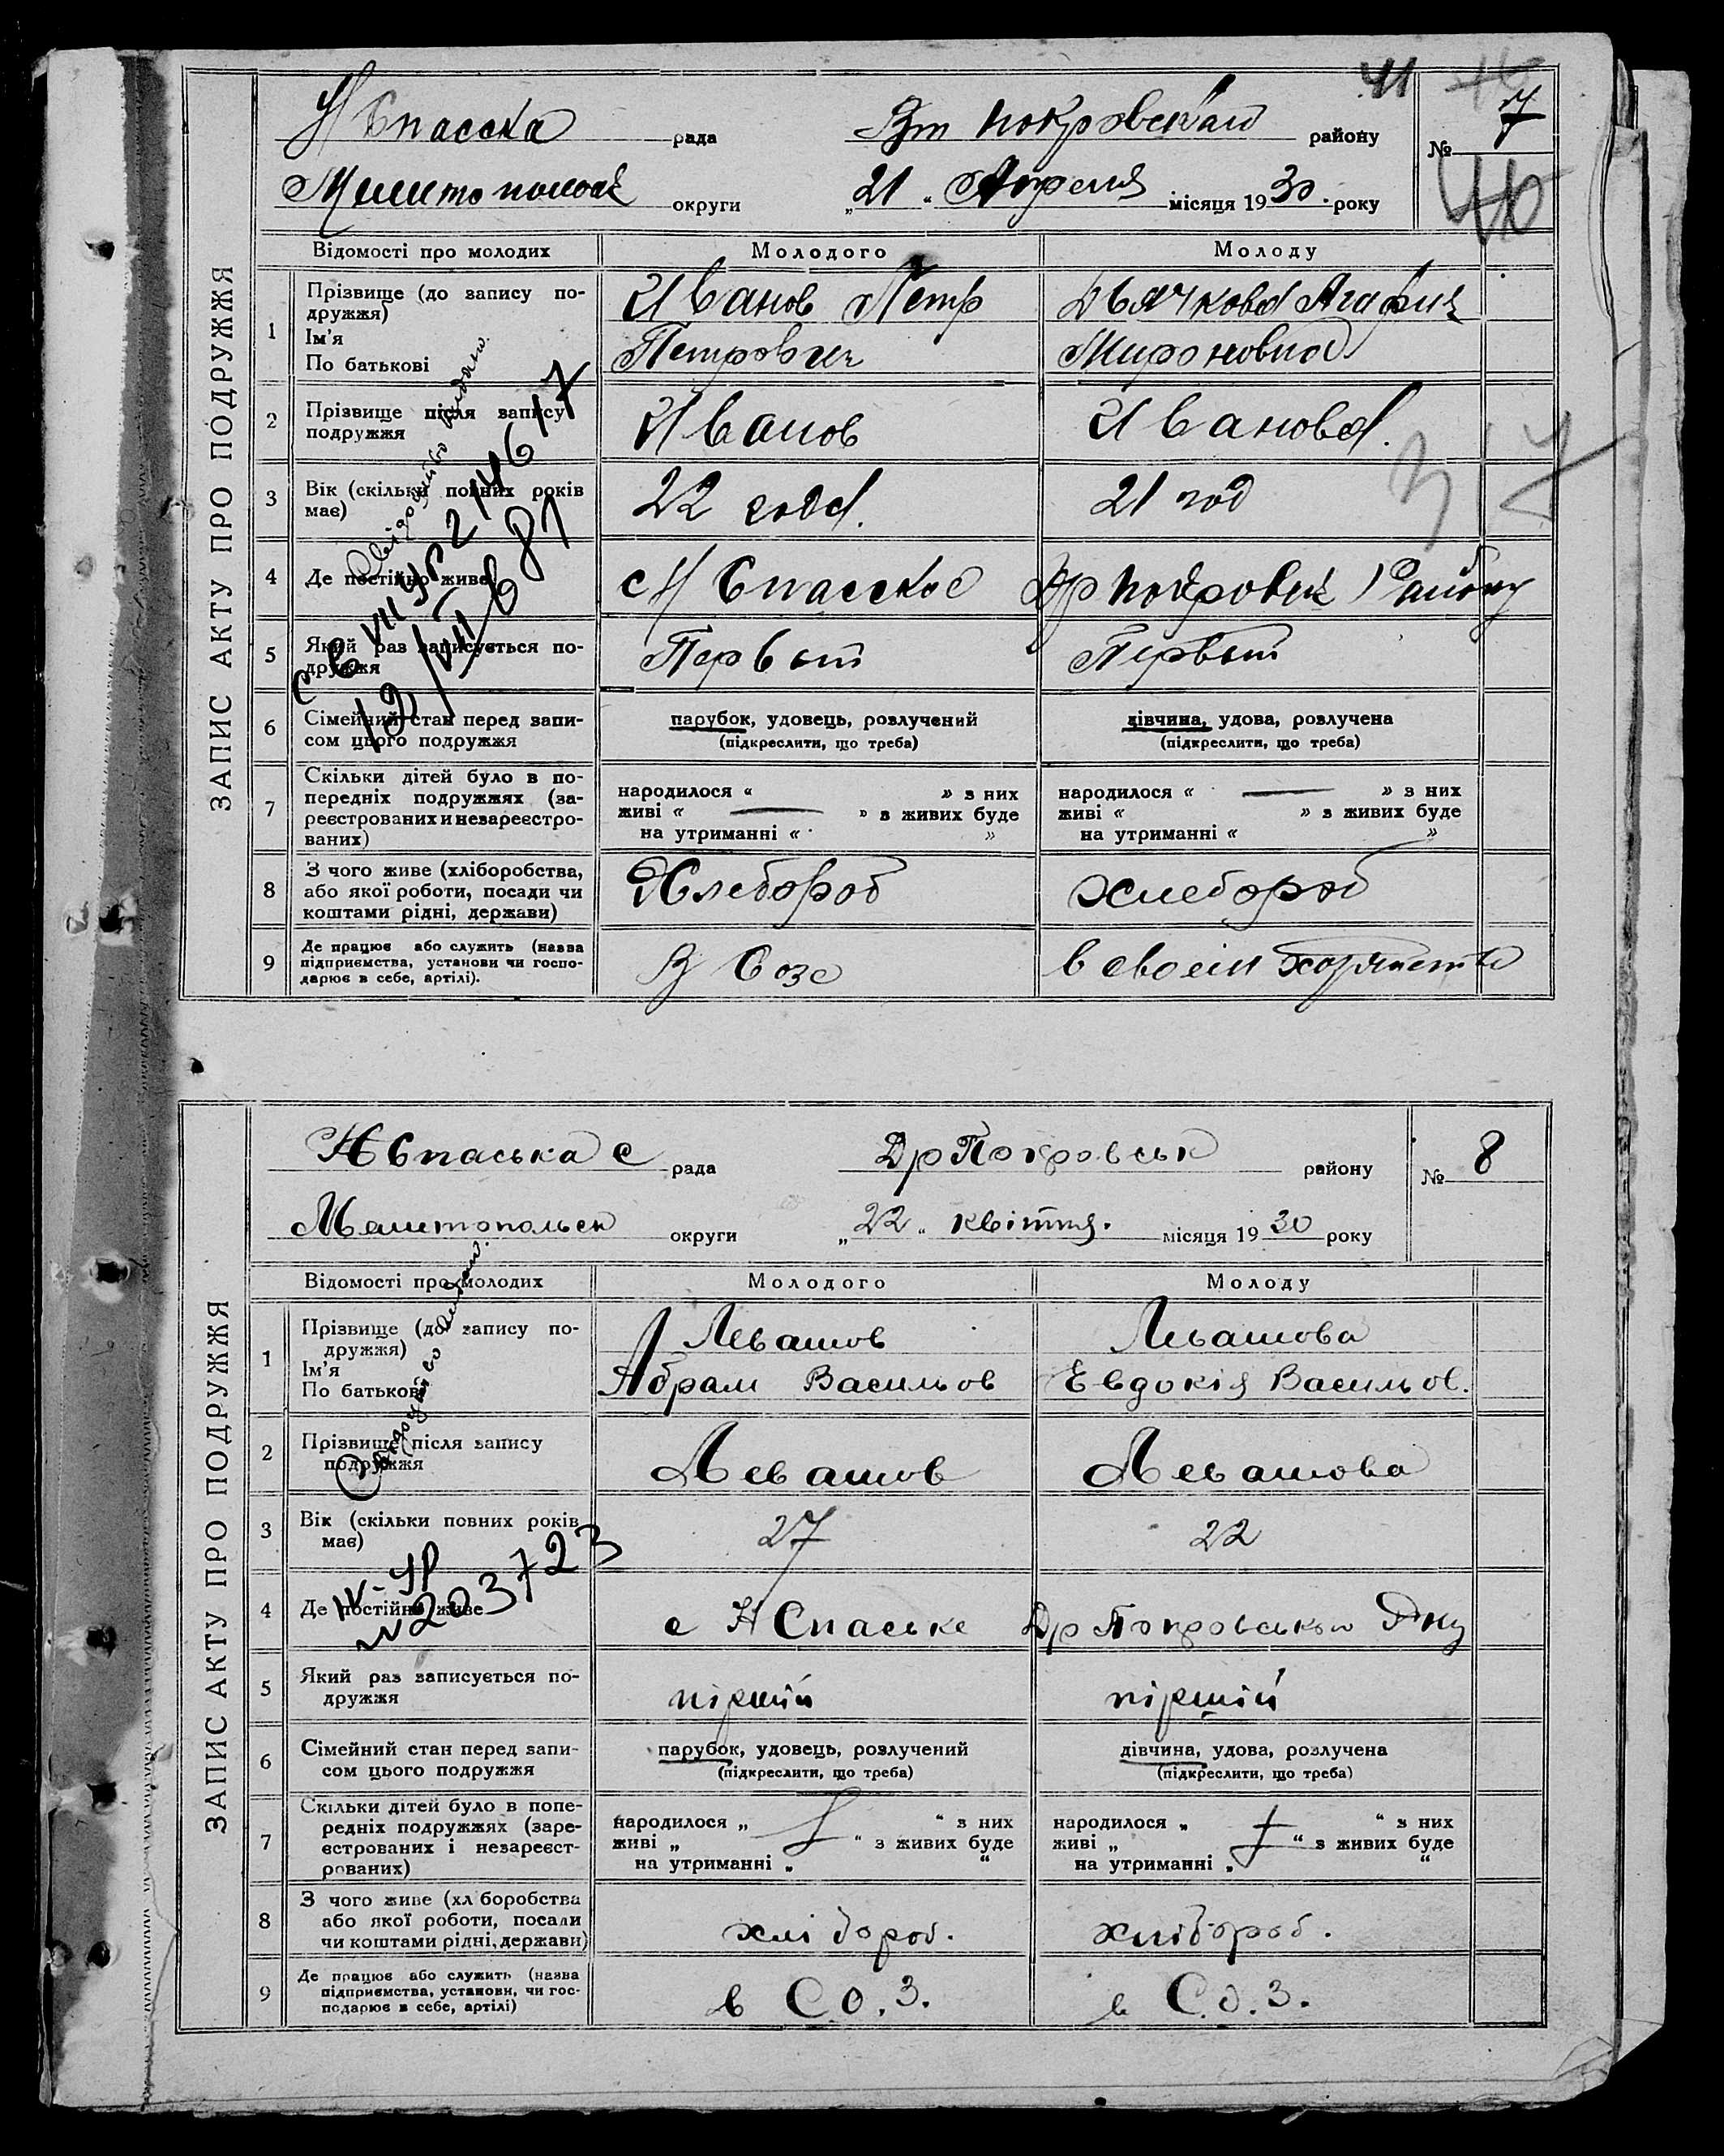 41
Н Спасска рада Вт Покровскаго району № 7
Мелитопольск округи „21“ Апреля місяця 1930 року
46
ЗАПИС АКТУ ПРО ПОДРУЖЖЯ
Відомості про молодих Молодого Молоду
1 Прізвище (до запису по-
дружжя)
Ім'я
По батькові
Иванов Петр
Петрович
Дьячкова Агафия
Мироновна
2 Прізвище після запису
подружжя
Иванов Иванова
3 Вік (скільки повних років
має)
22 года. 21 год
37
4 Де постійно живе с Н Спасское Др Покровск Району
5 Який раз записується по-
дружжя
Первый Первый
6 Сімейний стан перед запи-
сом цього подружжя
парубок, удовець, розлучений
(підкреслити, що треба)
дівчина, удова, розлучена
(підкреслити, що треба)
7 Скільки дітей було в по-
передніх подружжях (за-
реєстрованих и незареєстро-
ваних)
народилося « — » з них
живі « » з живих буде
на утриманні « »
народилося « — » з них
живі « » з живих буде
на утриманні « »
8 З чого живе (хліборобства,
або якої роботи, посади чи
коштами рідні, держави)
Хлебороб хлебороб
9 Де працює або служить (назва
підприємства, установи чи госпо-
дарює в себе, артілі).
В Созе в своем хозяйстве
Свідоцтво видано.
№ 203723
Н Спаська с рада Др Покровськ району № 8
Мелитопольск округи „22“ квітня. місяця 1930 року
ЗАПИС АКТУ ПРО ПОДРУЖЖЯ
Відомості про молодих Молодого Молоду
1 Прізвище (до запису по-
дружжя)
Ім'я
По батькові
Левашов
Абрам Васильов
Левашова
Евдокія Васильов.
2 Прізвище після запису
подружжя
Левашов Левашова
3 Вік (скільки повних років
має)
27 22
4 Де постійно живе с Н Спаське Др Покровського Р-ну
5 Який раз записується по-
дружжя
пірший пірший
6 Сімейний стан перед запи-
сом цього подружжя
парубок, удовець, розлучений
(підкреслити, що треба)
дівчина, удова, розлучена
(підкреслити, що треба)
7 Скільки дітей було в попе-
редніх подружжях (заре-
єстрованих і незареєст-
рованих)
народилося „ “ з них
живі „ “ з живих буде
на утриманні „ “
народилося „ “ з них
живі „ “ з живих буде
на утриманні „ “
8 З чого живе (хл боробства
або якої роботи, посади
чи коштами рідні, держави)
хлібороб. хлібороб.
9 Де працює або служить (назва
підприємства, установи, чи гос-
подарює в себе, артілі)
в С.О.З. в С.О.З.